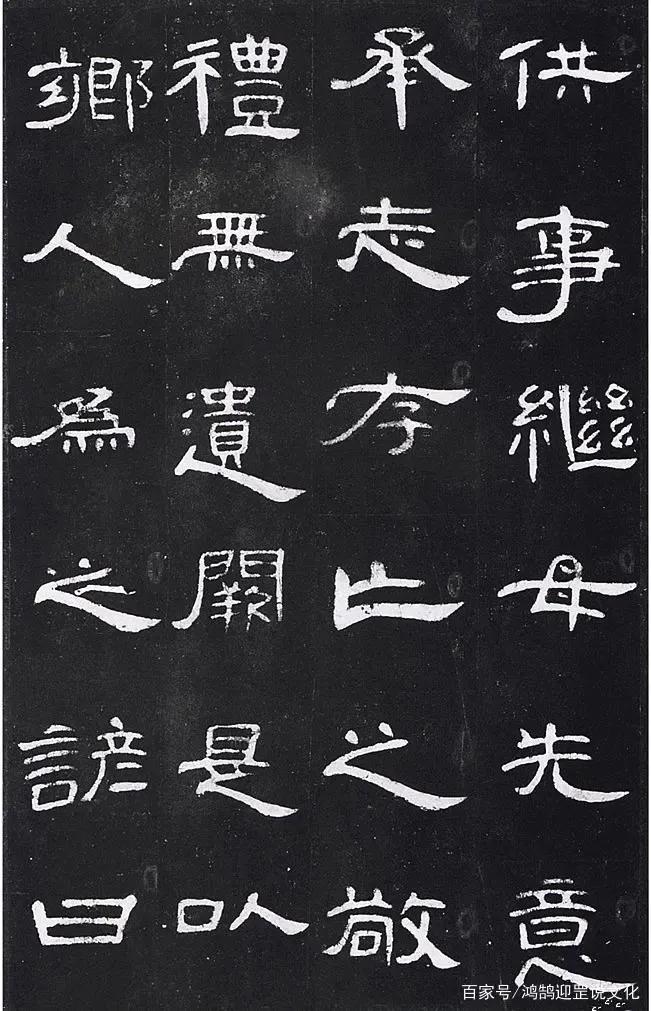 供事繼母先意
承志存亡之敬
禮無遺闕是以
鄉人為之諺曰
百家号/鸿鹄迎罡说文化